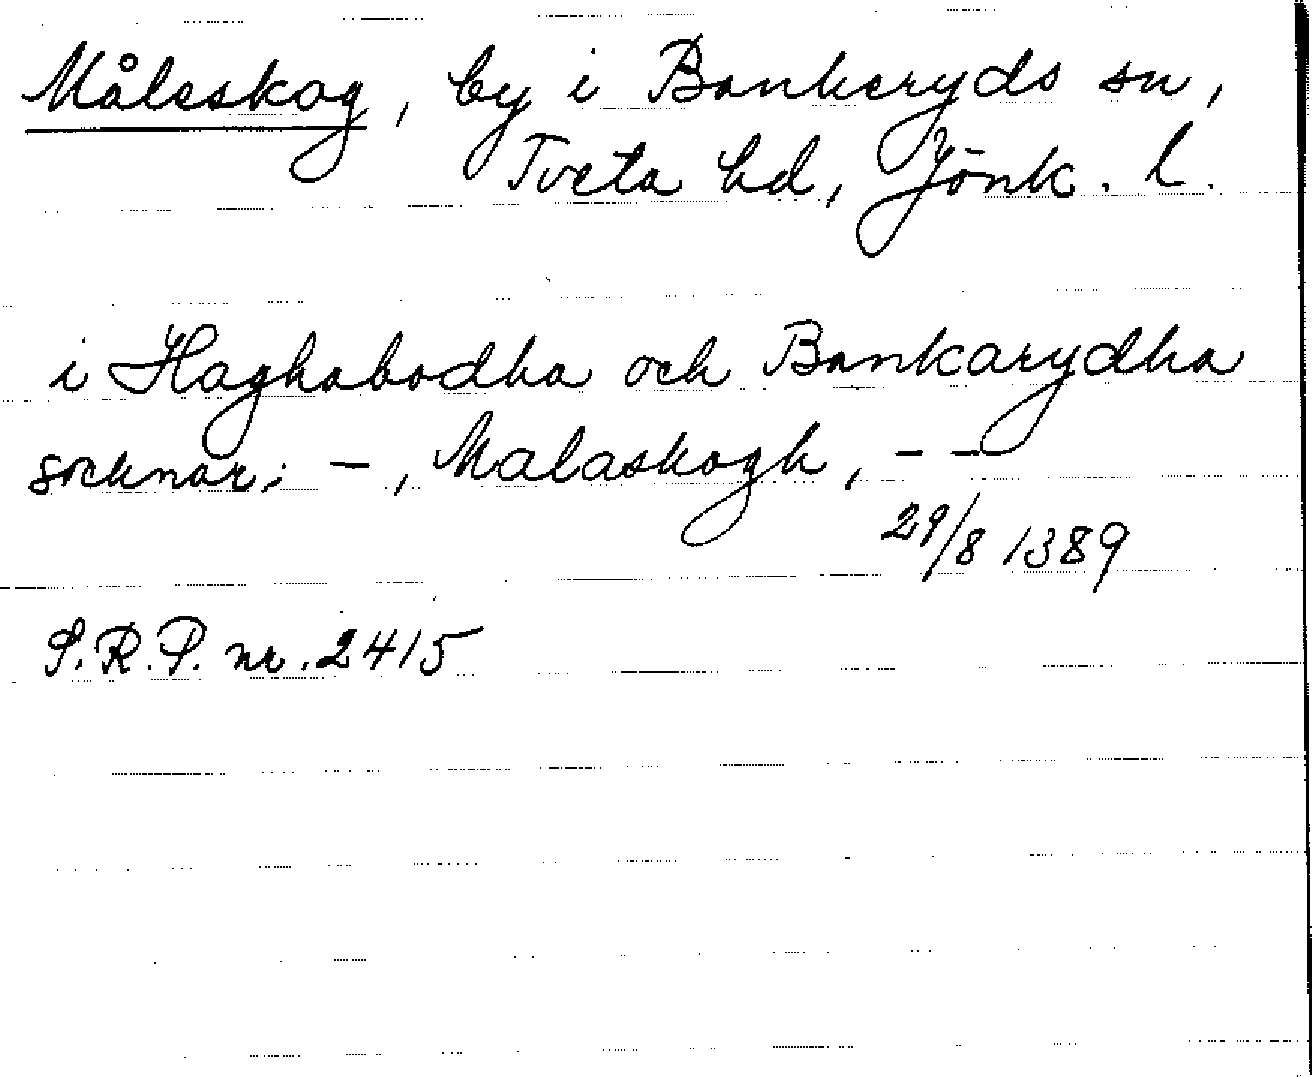 Måleskog, by i Bankeryds sn,
Tveta hd, Jönk. l.
i Haghabodha och Bankarydha
socknar: –, Malaskogh, – –
29/8 1389
S.R.P. nr. 2415